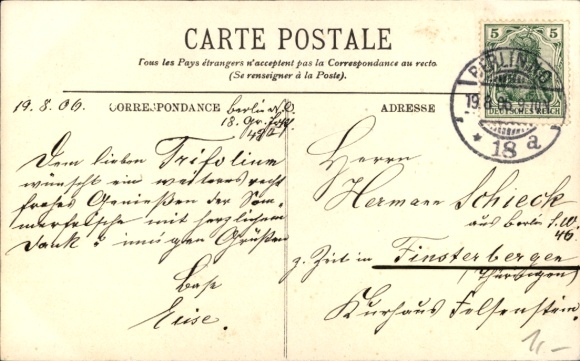 CARTE POSTALE
Tous les Pays étrangers n'acceptent pas la Correspondance au recto
(Se renseigner à la Poste).
19.8.06.
CORRESPONDANCE
Berlin N.O.
18. Gr. Frkf.
ADRESSE
5 5
DEUTSCHES REICH
BERLIN NO
18 a
Dem lieben Trifolium
wünscht ein weiteres recht
frohes Genießen der Som-
merfrische mit herzlichem
Dank & innigen Grüßen
Base
Elise.
Herrn
Hermann Schieck
aus Berlin S.W.
46
z. Zeit in Finsterbergen
(Thüringen)
Kurhaus Felsenstein.
1,-